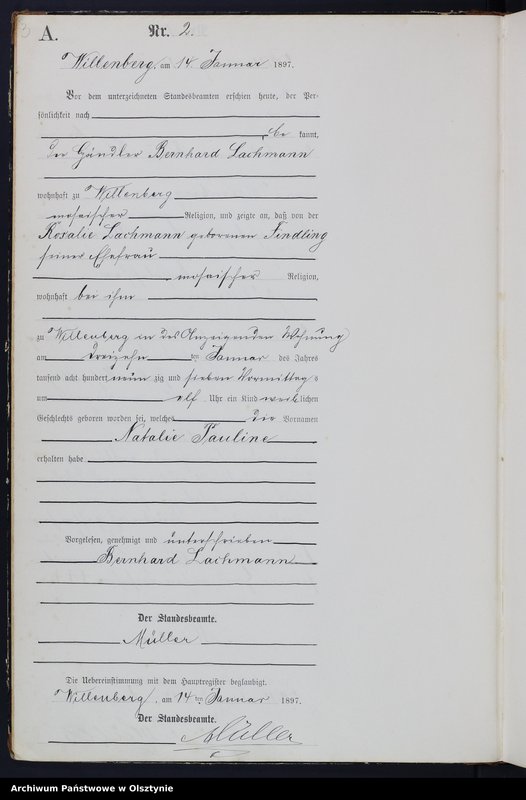 3
A.
Nr. 2.
Willenberg, am 14. Januar 1897.
Vor dem unterzeichneten Standesbeamten erschien heute, der Per-
sönlichkeit nach
be kannt,
der Händler Bernhard Lachmann
wohnhaft zu Willenberg
mosaischer Religion, und zeigte an, daß von der
Rosalie Lachmann geborenen Findling
seiner Ehefrau
mosaischer Religion,
wohnhaft bei ihm
zu Willenberg in des Anzeigenden Wohnung
am dreizehn ten Januar des Jahres
tausend acht hundert neun zig und sieben Vormittags
um elf Uhr ein Kind weiblichen
Geschlechts geboren worden sei, welches die Vornamen
Natalie Pauline
erhalten habe
Vorgelesen, genehmigt und unterschrieben
Bernhard Lachmann
Der Standesbeamte.
Müller
Die Uebereinstimmung mit dem Hauptregister beglaubigt.
Willenberg, am 14 ten Januar 1897.
Der Standesbeamte.
Müller
Archiwum Państwowe w Olsztynie